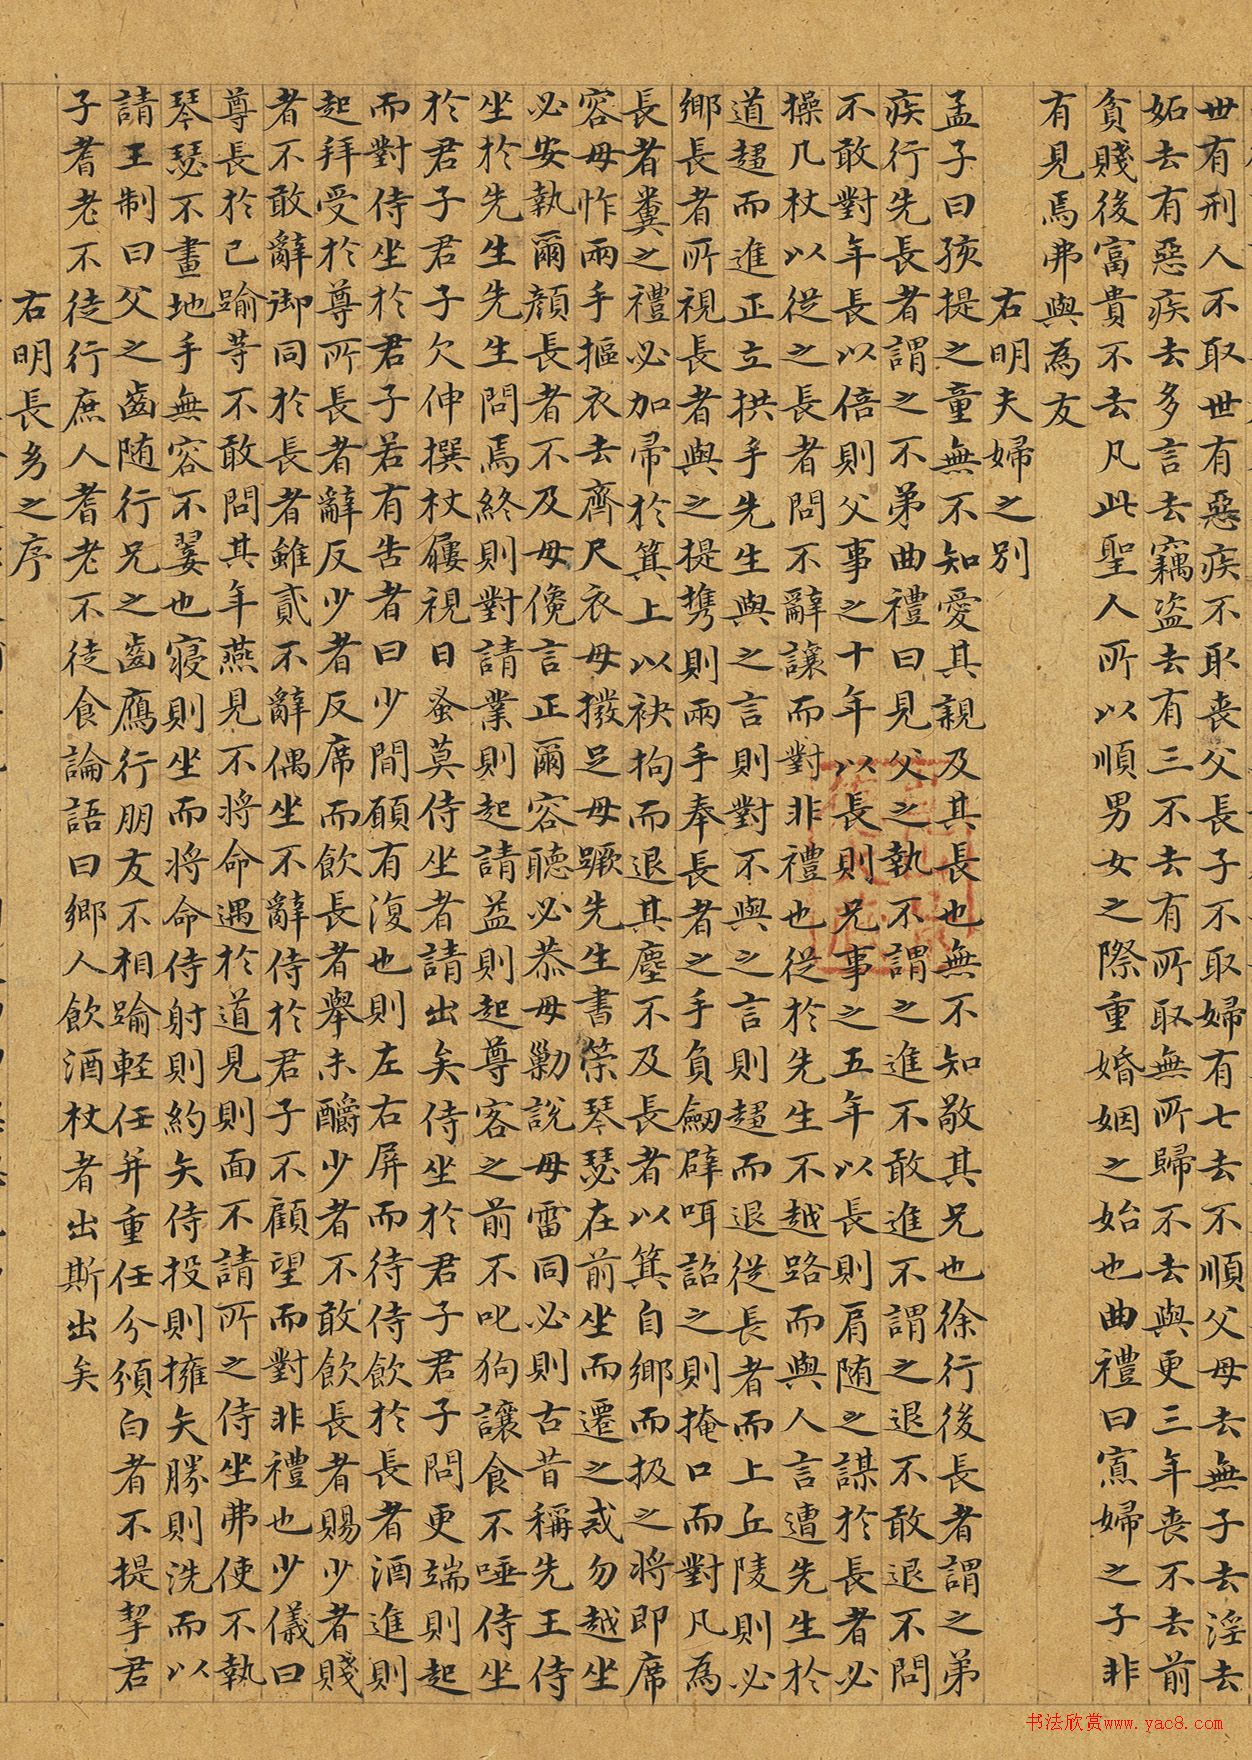 世有刑人不取世有惡疾不取喪父長子不取婦有七去不順父母去無子去淫去
妬去有惡疾去多言去竊盗去有三不去有所取無所歸不去與更三年喪不去前
貧賤後富貴不去凡此聖人所以順男女之際重婚姻之始也曲禮曰寡婦之子非
有見焉弗與為友
右明夫婦之別
孟子曰孩提之童無不知愛其親及其長也無不知敬其兄也徐行後長者謂之弟
疾行先長者謂之不弟曲禮曰見父之執不謂之進不敢進不謂之退不敢退不問
不敢對年長以倍則父事之十年以長則兄事之五年以長則肩随之謀於長者必
操几杖以從之長者問不辭讓而對非禮也從於先生不越路而與人言遭先生於
道趨而進正立拱手先生與之言則對不與之言則趨而退從長者而上丘陵則必
鄉長者所視長者與之提携則兩手奉長者之手負劒辟咡詔之則掩口而對凡為
長者糞之禮必加帚於箕上以袂拘而退其塵不及長者以箕自鄉而扱之将即席
容毋怍兩手摳衣去齊尺衣毋撥足毋蹶先生書筞琴瑟在前坐而遷之戒勿越坐
必安執爾顔長者不及毋儳言正爾容聽必恭毋勦說毋雷同必則古昔稱先王侍
坐於先生先生問焉終則對請業則起請益則起尊客之前不叱狗讓食不唾侍坐
於君子君子欠伸撰杖屨視日蚤莫侍坐者請出矣侍坐於君子君子問更端則起
而對侍坐於君子若有告者曰少間願有復也則左右屏而待侍飲於長者酒進則
起拜受於尊所長者辭反少者反席而飲長者舉未釂少者不敢飲長者賜少者賤
者不敢辭御同於長者雖貳不辭偶坐不辭侍於君子不顧望而對非禮也少儀曰
尊長於己踰等不敢問其年燕見不将命遇於道見則面不請所之侍坐弗使不執
琴瑟不畫地手無容不翣也寢則坐而将命侍射則約矢侍投則擁矢勝則洗而以
請王制曰父之齒随行兄之齒鴈行朋友不相踰軽任并重任分頒白者不提挈君
子耆老不徒行庶人耆老不徒食論語曰鄉人飲酒杖者出斯出矣
右明長㓜之序
书法欣赏www.yac8.com